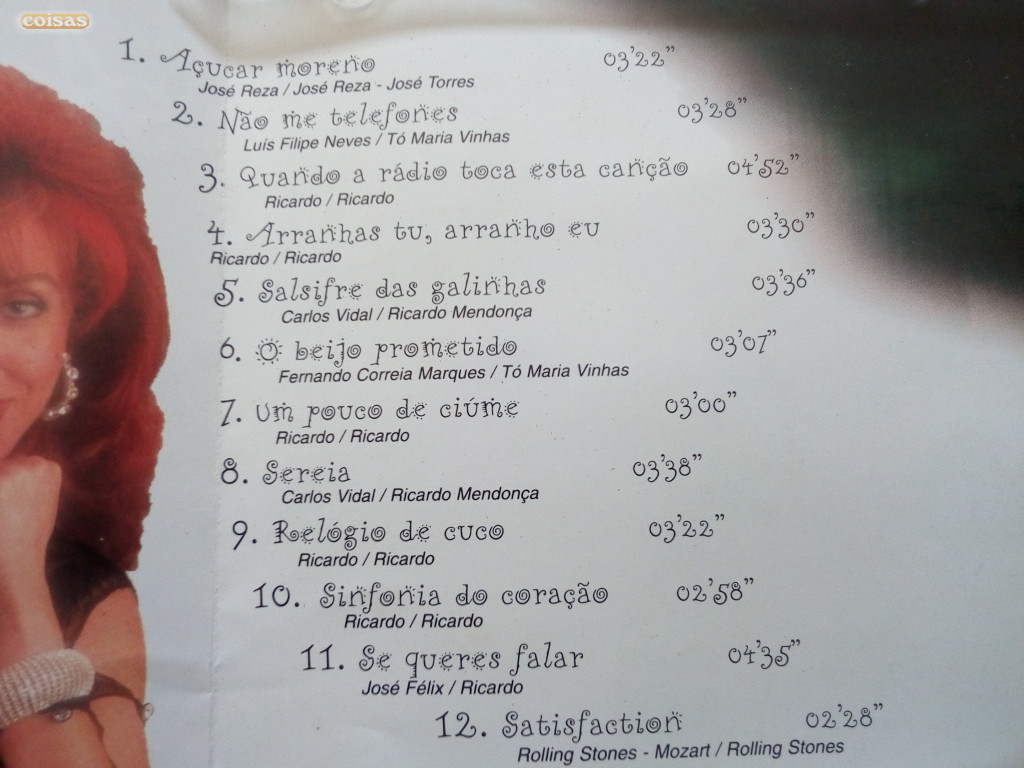 coisas
1. Açucar moreno 03'22"
José Reza / José Reza - José Torres
2. Não me telefones 03'28"
Luís Filipe Neves / Tó Maria Vinhas
3. Quando a rádio toca esta canção 04'52"
Ricardo / Ricardo
4. Arranhas tu, arranho eu 03'30"
Ricardo / Ricardo
5. Salsifre das galinhas 03'36"
Carlos Vidal / Ricardo Mendonça
6. O beijo prometido 03'07"
Fernando Correia Marques / Tó Maria Vinhas
7. Um pouco de ciúme 03'00"
Ricardo / Ricardo
8. Sereia 03'38"
Carlos Vidal / Ricardo Mendonça
9. Relógio de cuco 03'22"
Ricardo / Ricardo
10. Sinfonia do coração 02'58"
Ricardo / Ricardo
11. Se queres falar 04'35"
José Félix / Ricardo
12. Satisfaction 02'28"
Rolling Stones - Mozart / Rolling Stones